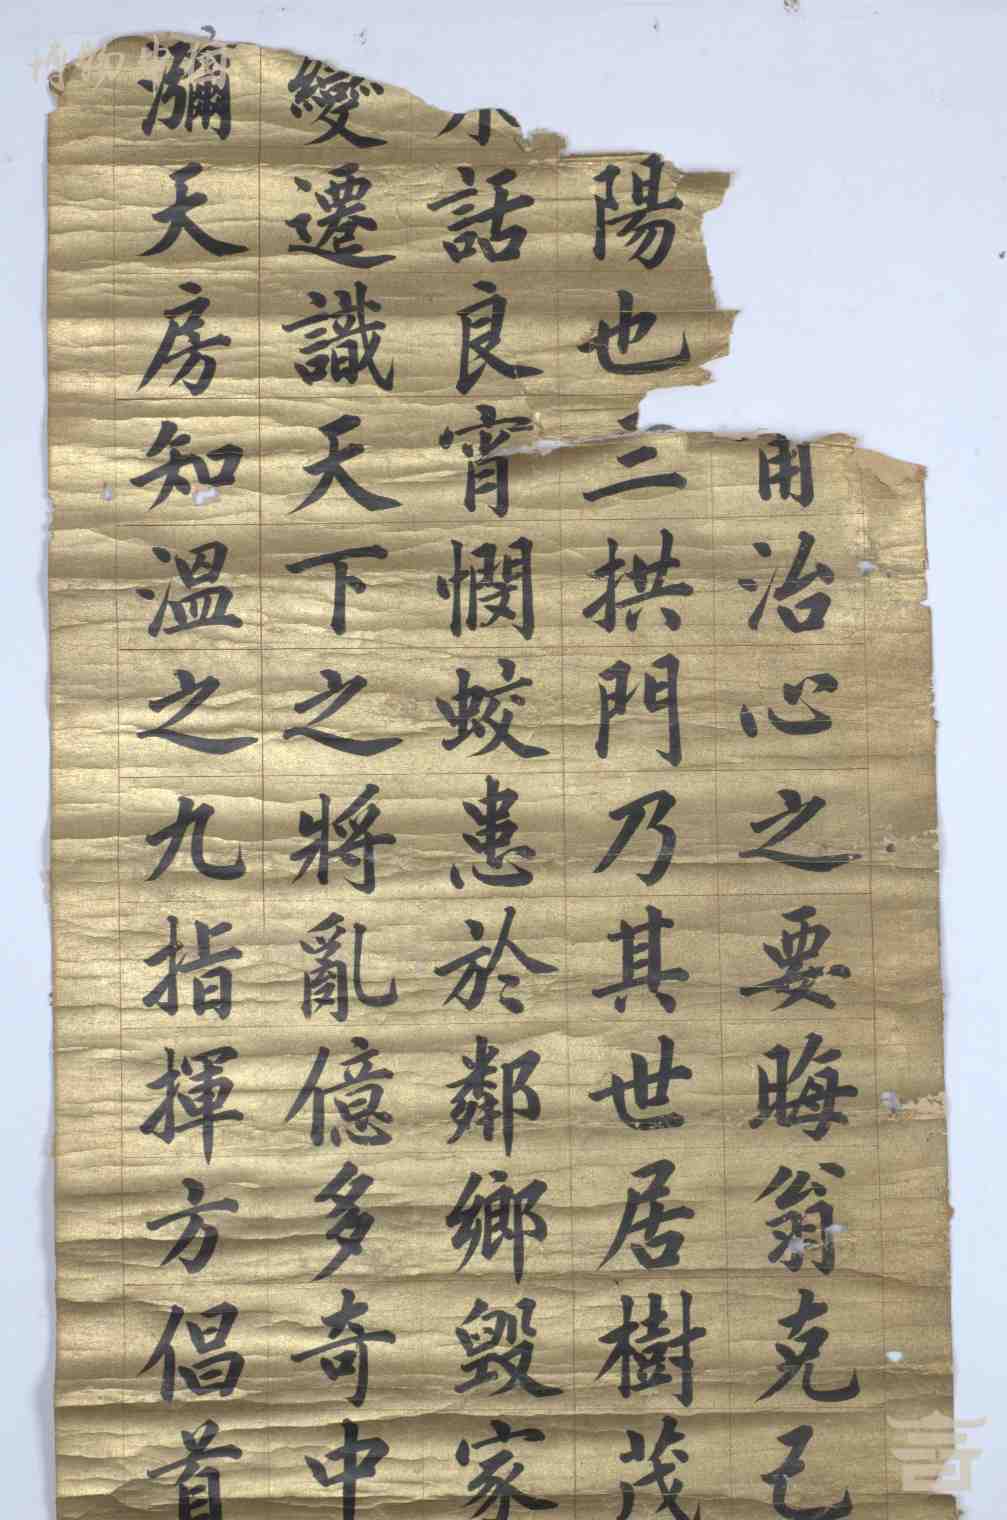 治心之要晦翁克己
陽也三拱門乃其世居樹茂
話良宵憫蛟患於鄰鄉毀家
變遷識天下之將亂億多奇中
瀰天房知溫之九指揮方倡首